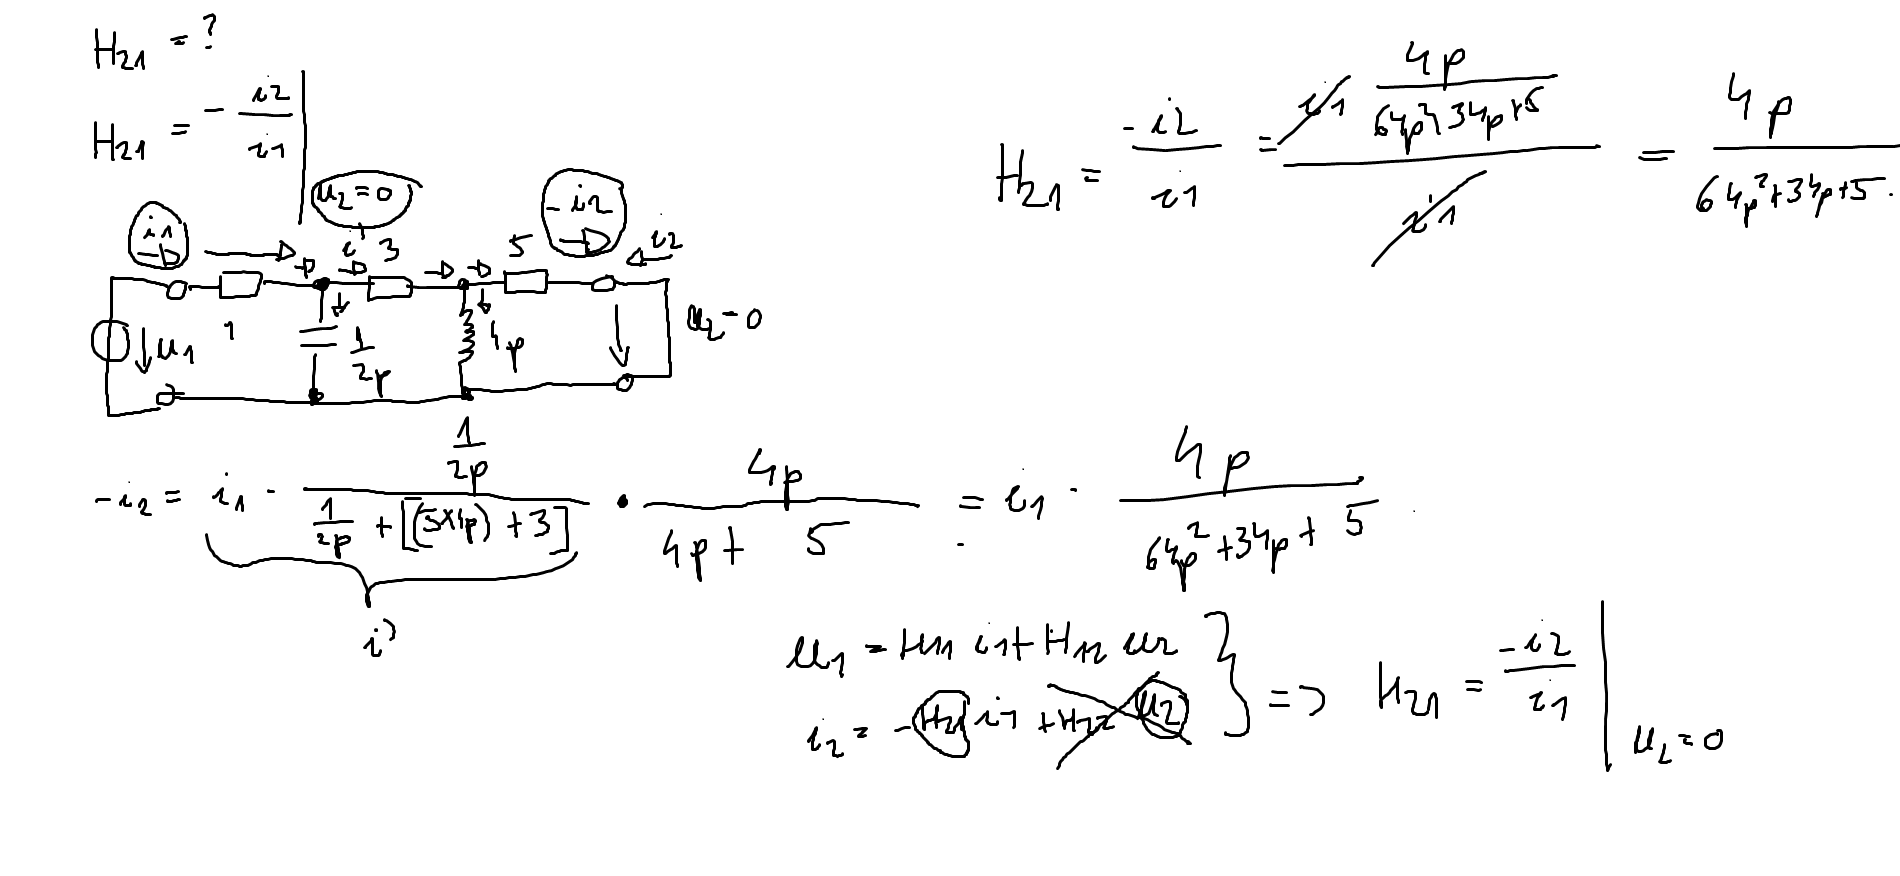 H21 = ?
H21 = - i2 / i1 |
u2 = 0
i1
i' 3
5
-i2
i2
u1
1
1/2p
4p
u2 = 0
-i2 = i1 · (1/2p) / (1/2p + [(5×4p) + 3]) · 4p / (4p + 5) = i1 · 4p / (64p² + 34p + 5)
i'
H21 = -i2 / i1 = i1 4p / (64p² + 34p + 5) / i1 = 4p / (64p² + 34p + 5)
u1 = H11 i1 + H12 u2
i2 = -H21 i1 + H22 u2 } => H21 = -i2 / i1 | u2 = 0